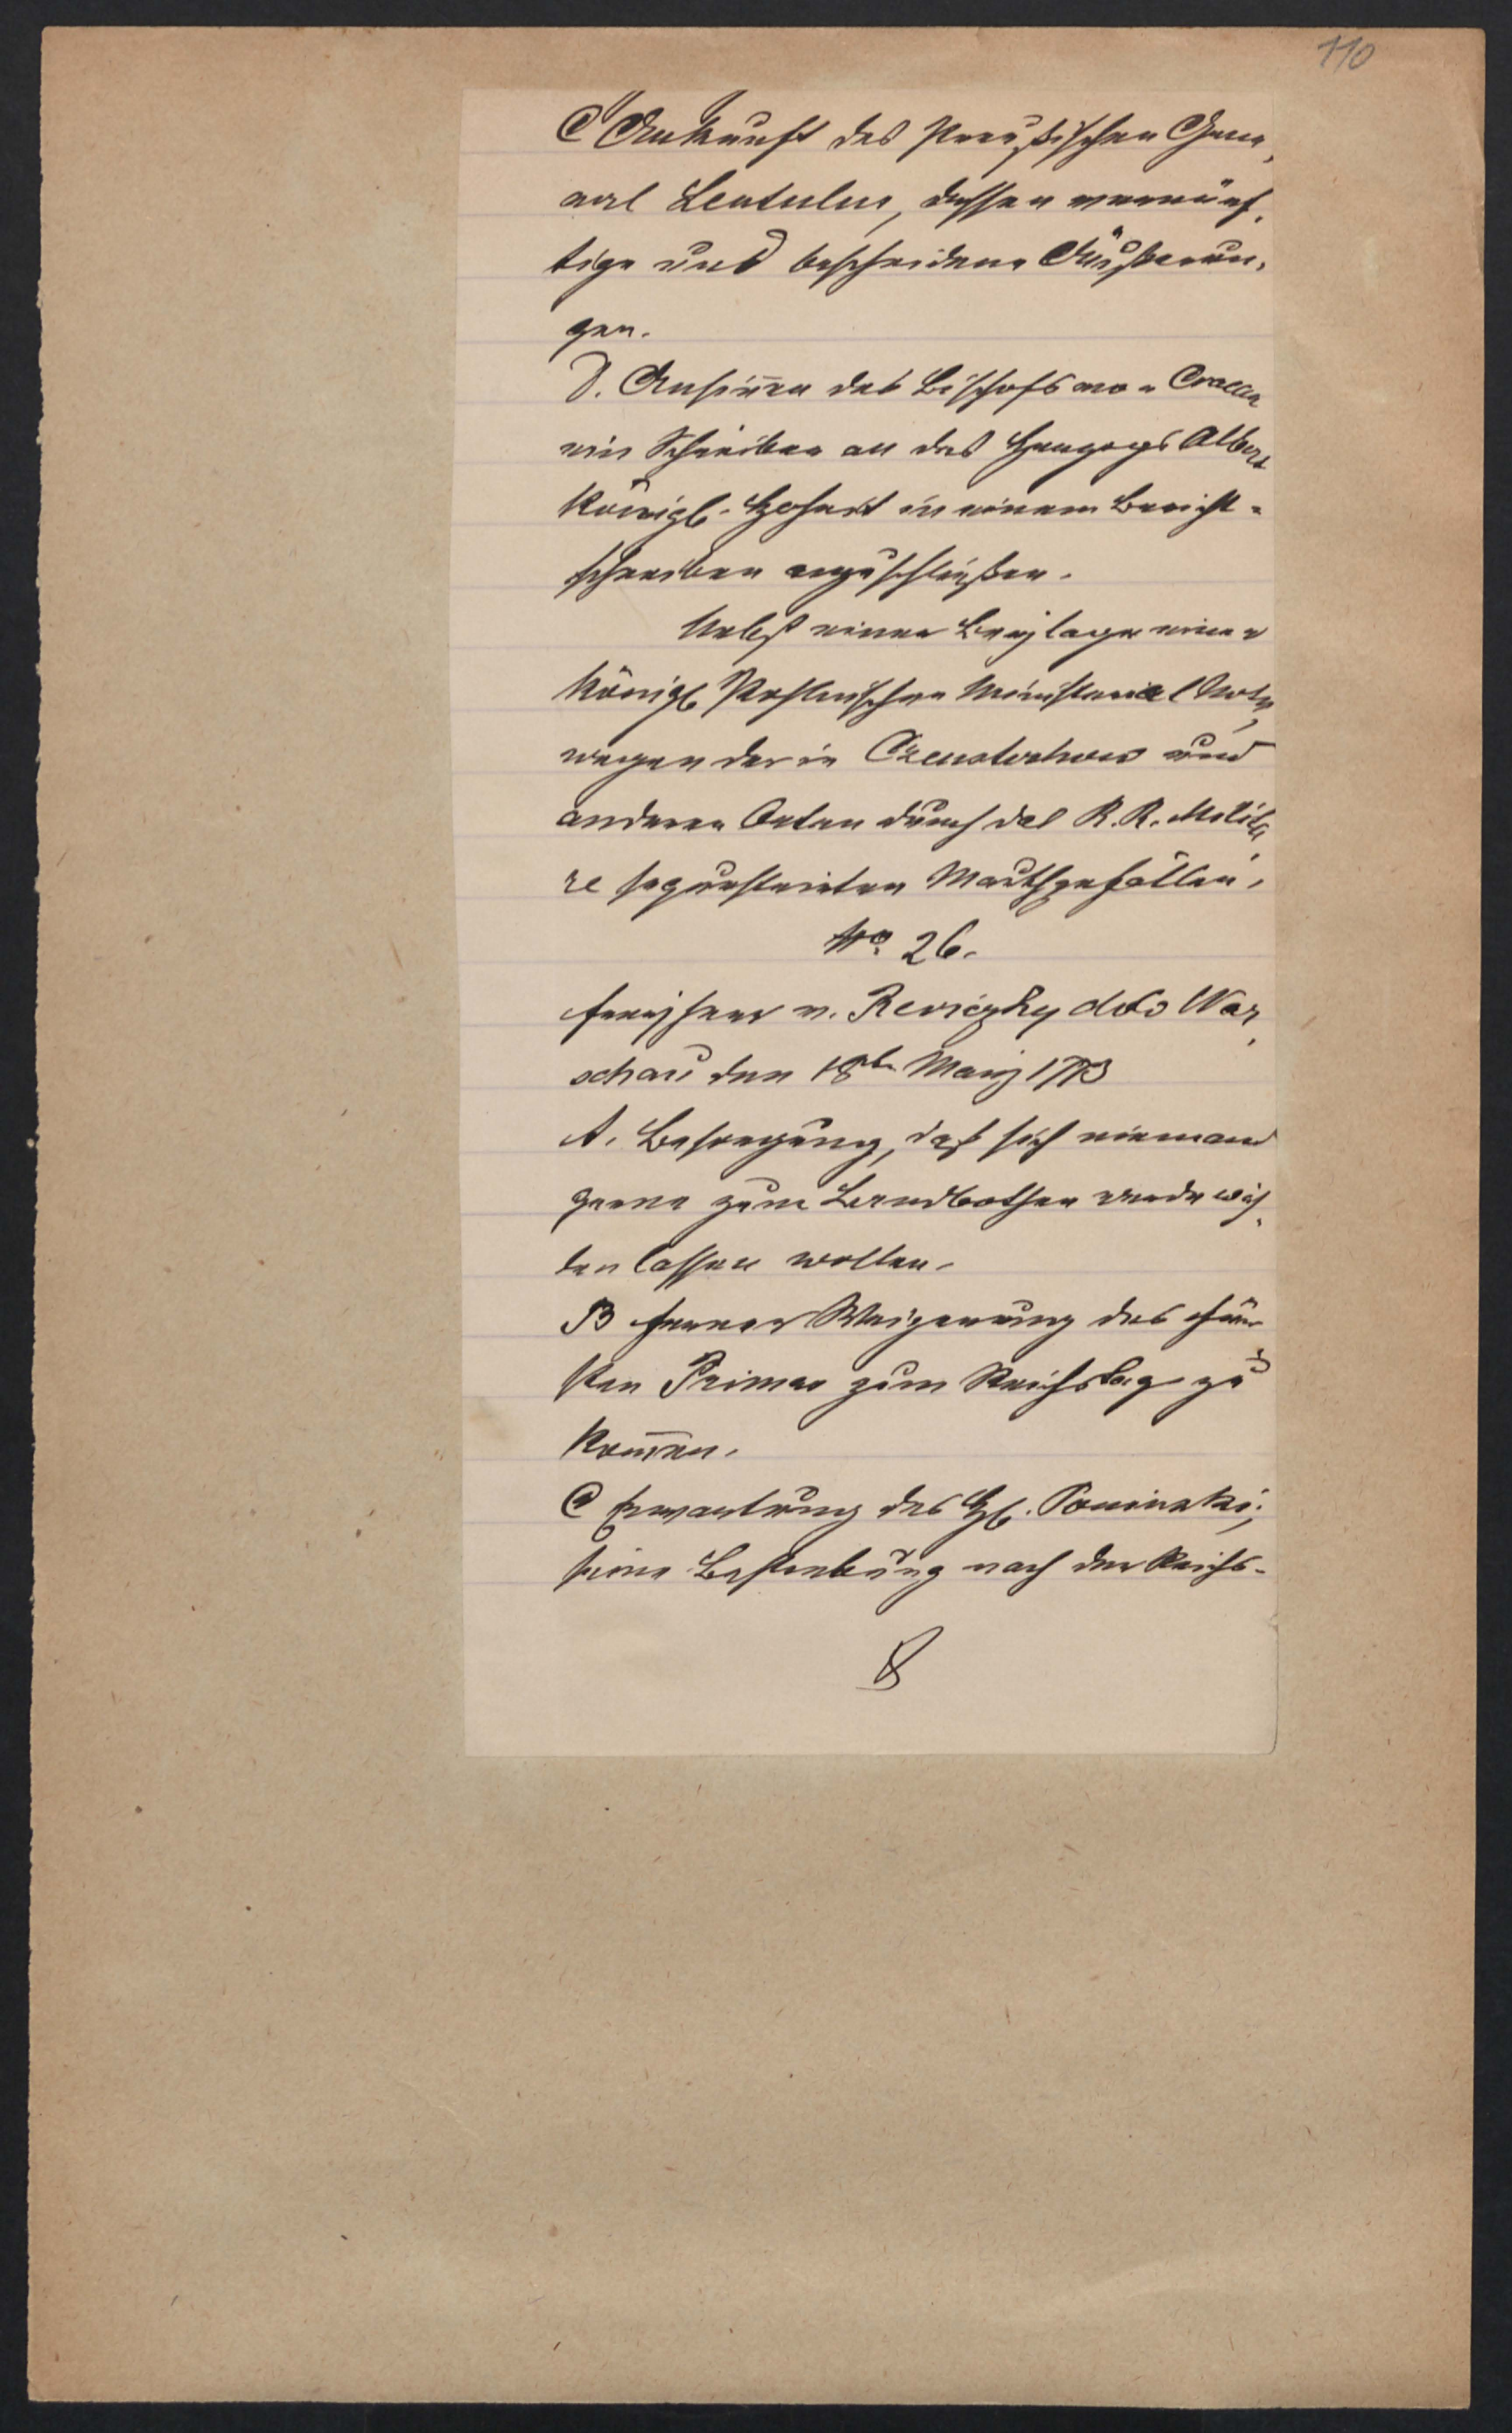 110
C Ankunft des Preußischen Gene,
ral Lentulus, dessen vernünf,
tige und bescheidene Äußerun,
gen.
D. Ansinnen des Bischofs von Cracau
ein Schreiben an des Herzogs Albert
Königl. Hoheit in einem Bericht-
schreiben anzuschließen.
Nebst einer Beylage einer
Königl. Pohlnischen Ministerial Note,
wegen der in Czenstochow und
anderen Orten durch das K. K. Milita,
re sequestrirten Mauthgefällen.
No 26.
Freyherr v. Reviczky ddo War,
schau den 18ten März 1773
A. Besorgung, daß sich niemand
gerne zum Landbothen werde wäh,
len lassen wollen.
B fernere Weigerung des Für
sten Primas zum Reichstage zu
kom̄en.
C Erwartung des H. Poninski;
seine Bestrebung nach der Reichs-
8